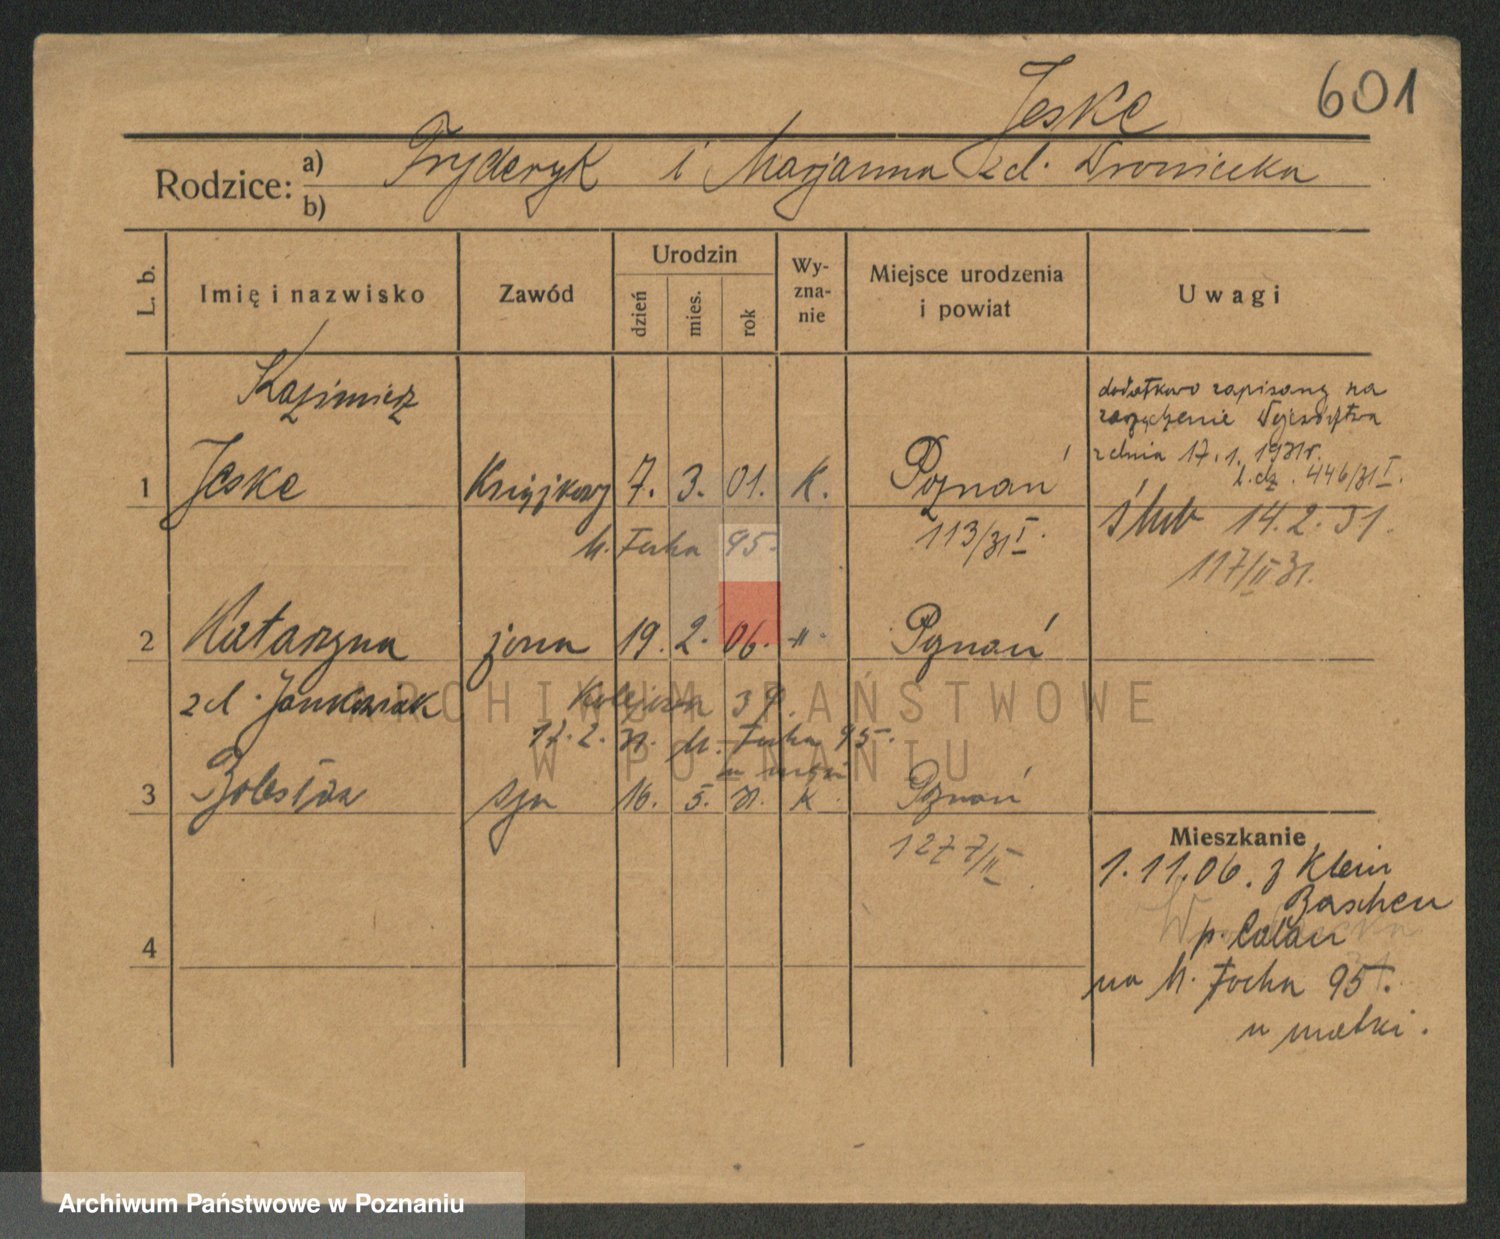 601
Jeske
Rodzice: a) b) Fryderyk i Marjanna zd. Wroniecka
L. b.
Imię i nazwisko
Zawód
Urodzin
dzień
mies.
rok
Wy-
zna-
nie
Miejsce urodzenia
i powiat
Uwagi
Kazimierz
1 Jeske 7. 3. 01. K. Poznań
M. Focha 95. 113/31 I.
dodatkowo zapisany na
zarządzenie Województwa
z dnia 17.1.1931r.
L.dz. 446/31 I.
ślub 14.2.31.
117/II 31.
2 Katarzyna żona 19. 2. 06. -"- Poznań
zd. Jankowiak 39.
12.2.31. M. Focha 95.
3 Bolesław syn 16. 5. 31. K. Poznań
1277/II
4
Mieszkanie
1.11.06. z Klein
Baschen
p.
na M. Focha 95.
u matki.
ARCHIWUM PAŃSTWOWE
W POZNANIU
Archiwum Państwowe w Poznaniu